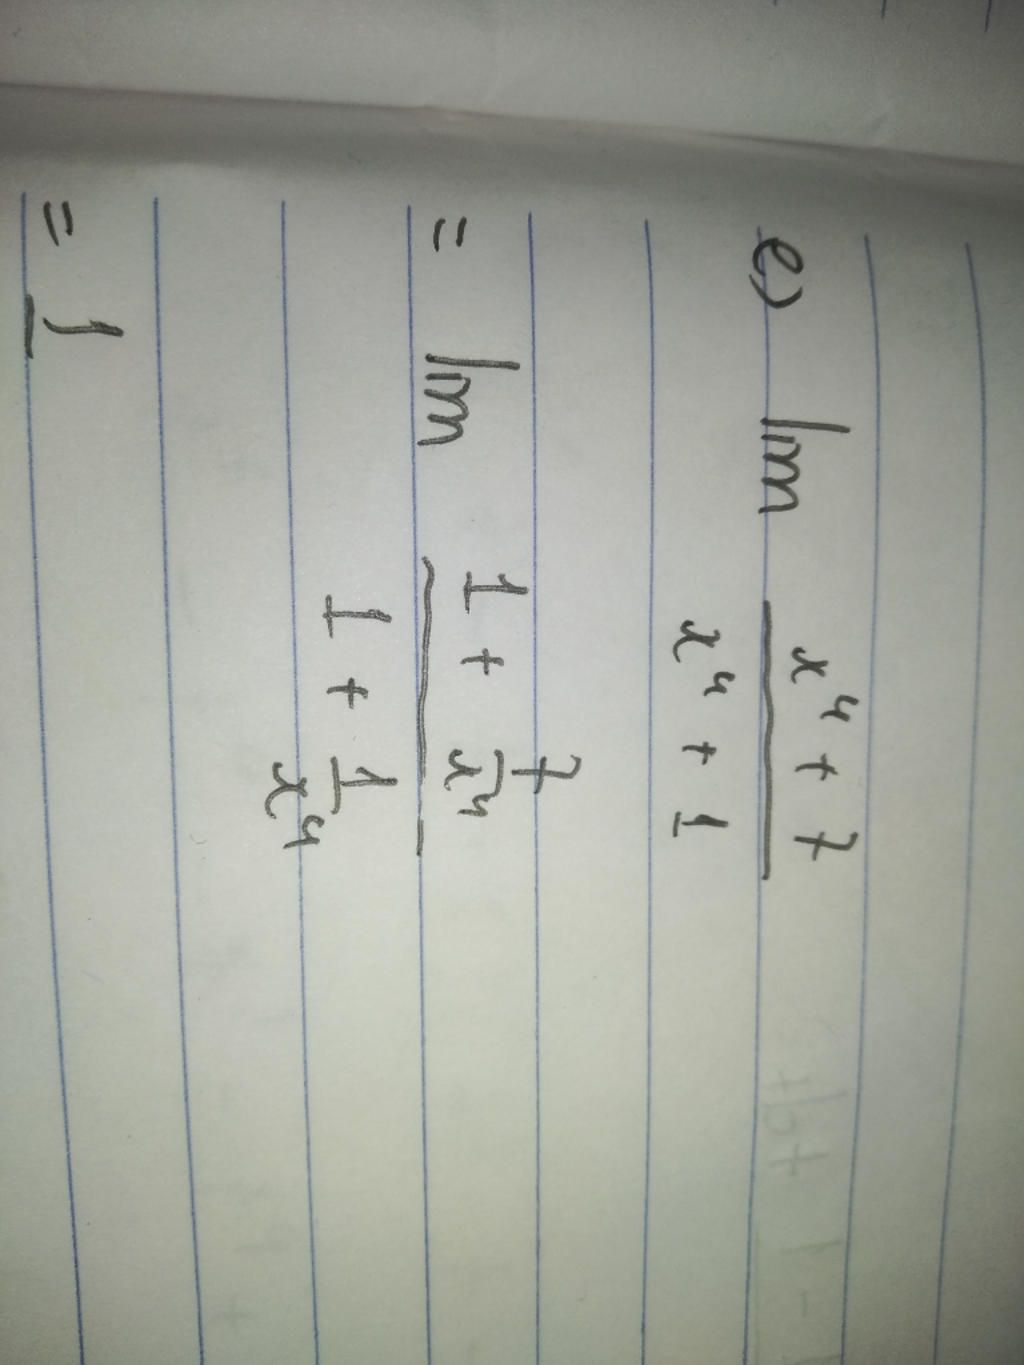 e) lim x⁴ + 7 / x⁴ + 1
= lim 1 + 7/x⁴ / 1 + 1/x⁴
= 1